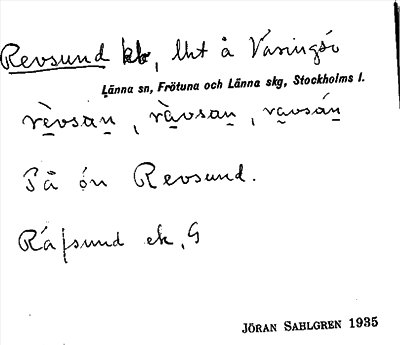 Revsund kb, lht å Väringsö
Länna sn, Frötuna och Länna skg, Stockholms l.
rèvsan, ràvsan, ravsán
På ön Revsund.
Räfsund ek, G
JÖRAN SAHLGREN 1935